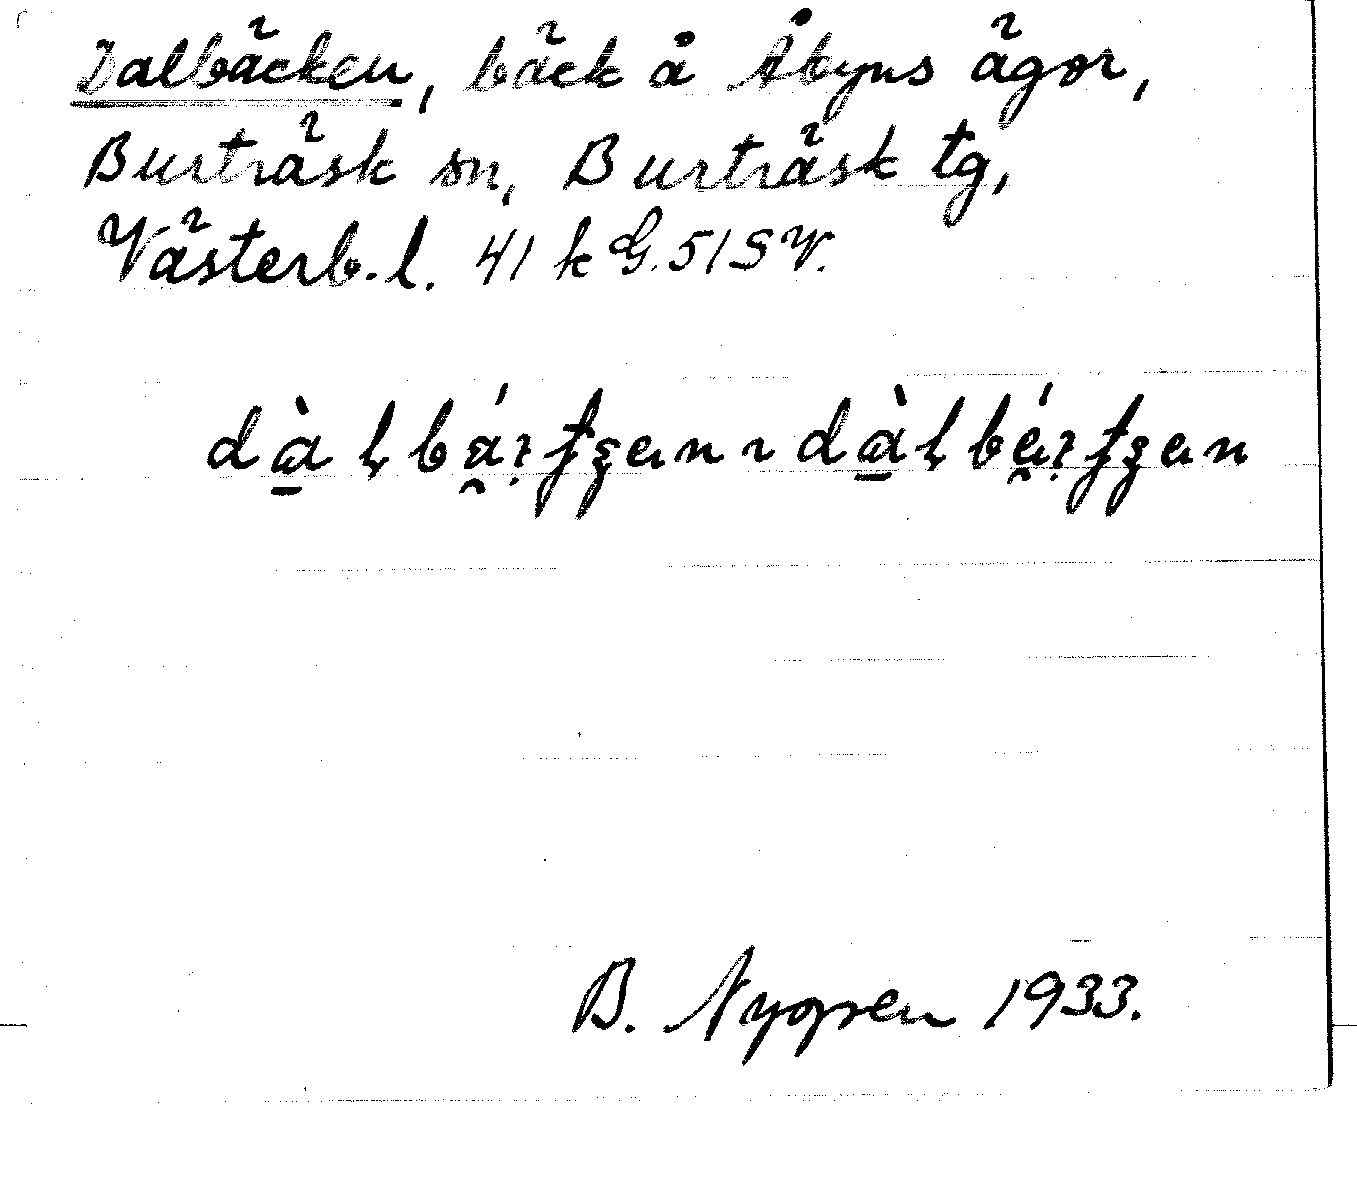 Dalbäcken, bäck å Åbyns ägor,
Burträsk sn, Burträsk tg,
Västerb. l. 41 k G. 51 SV.
B. Nygren 1933.